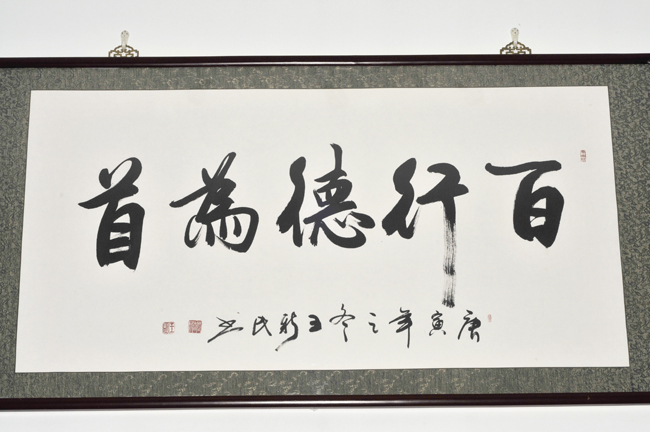 百行德為首
庚寅年之冬王新民书